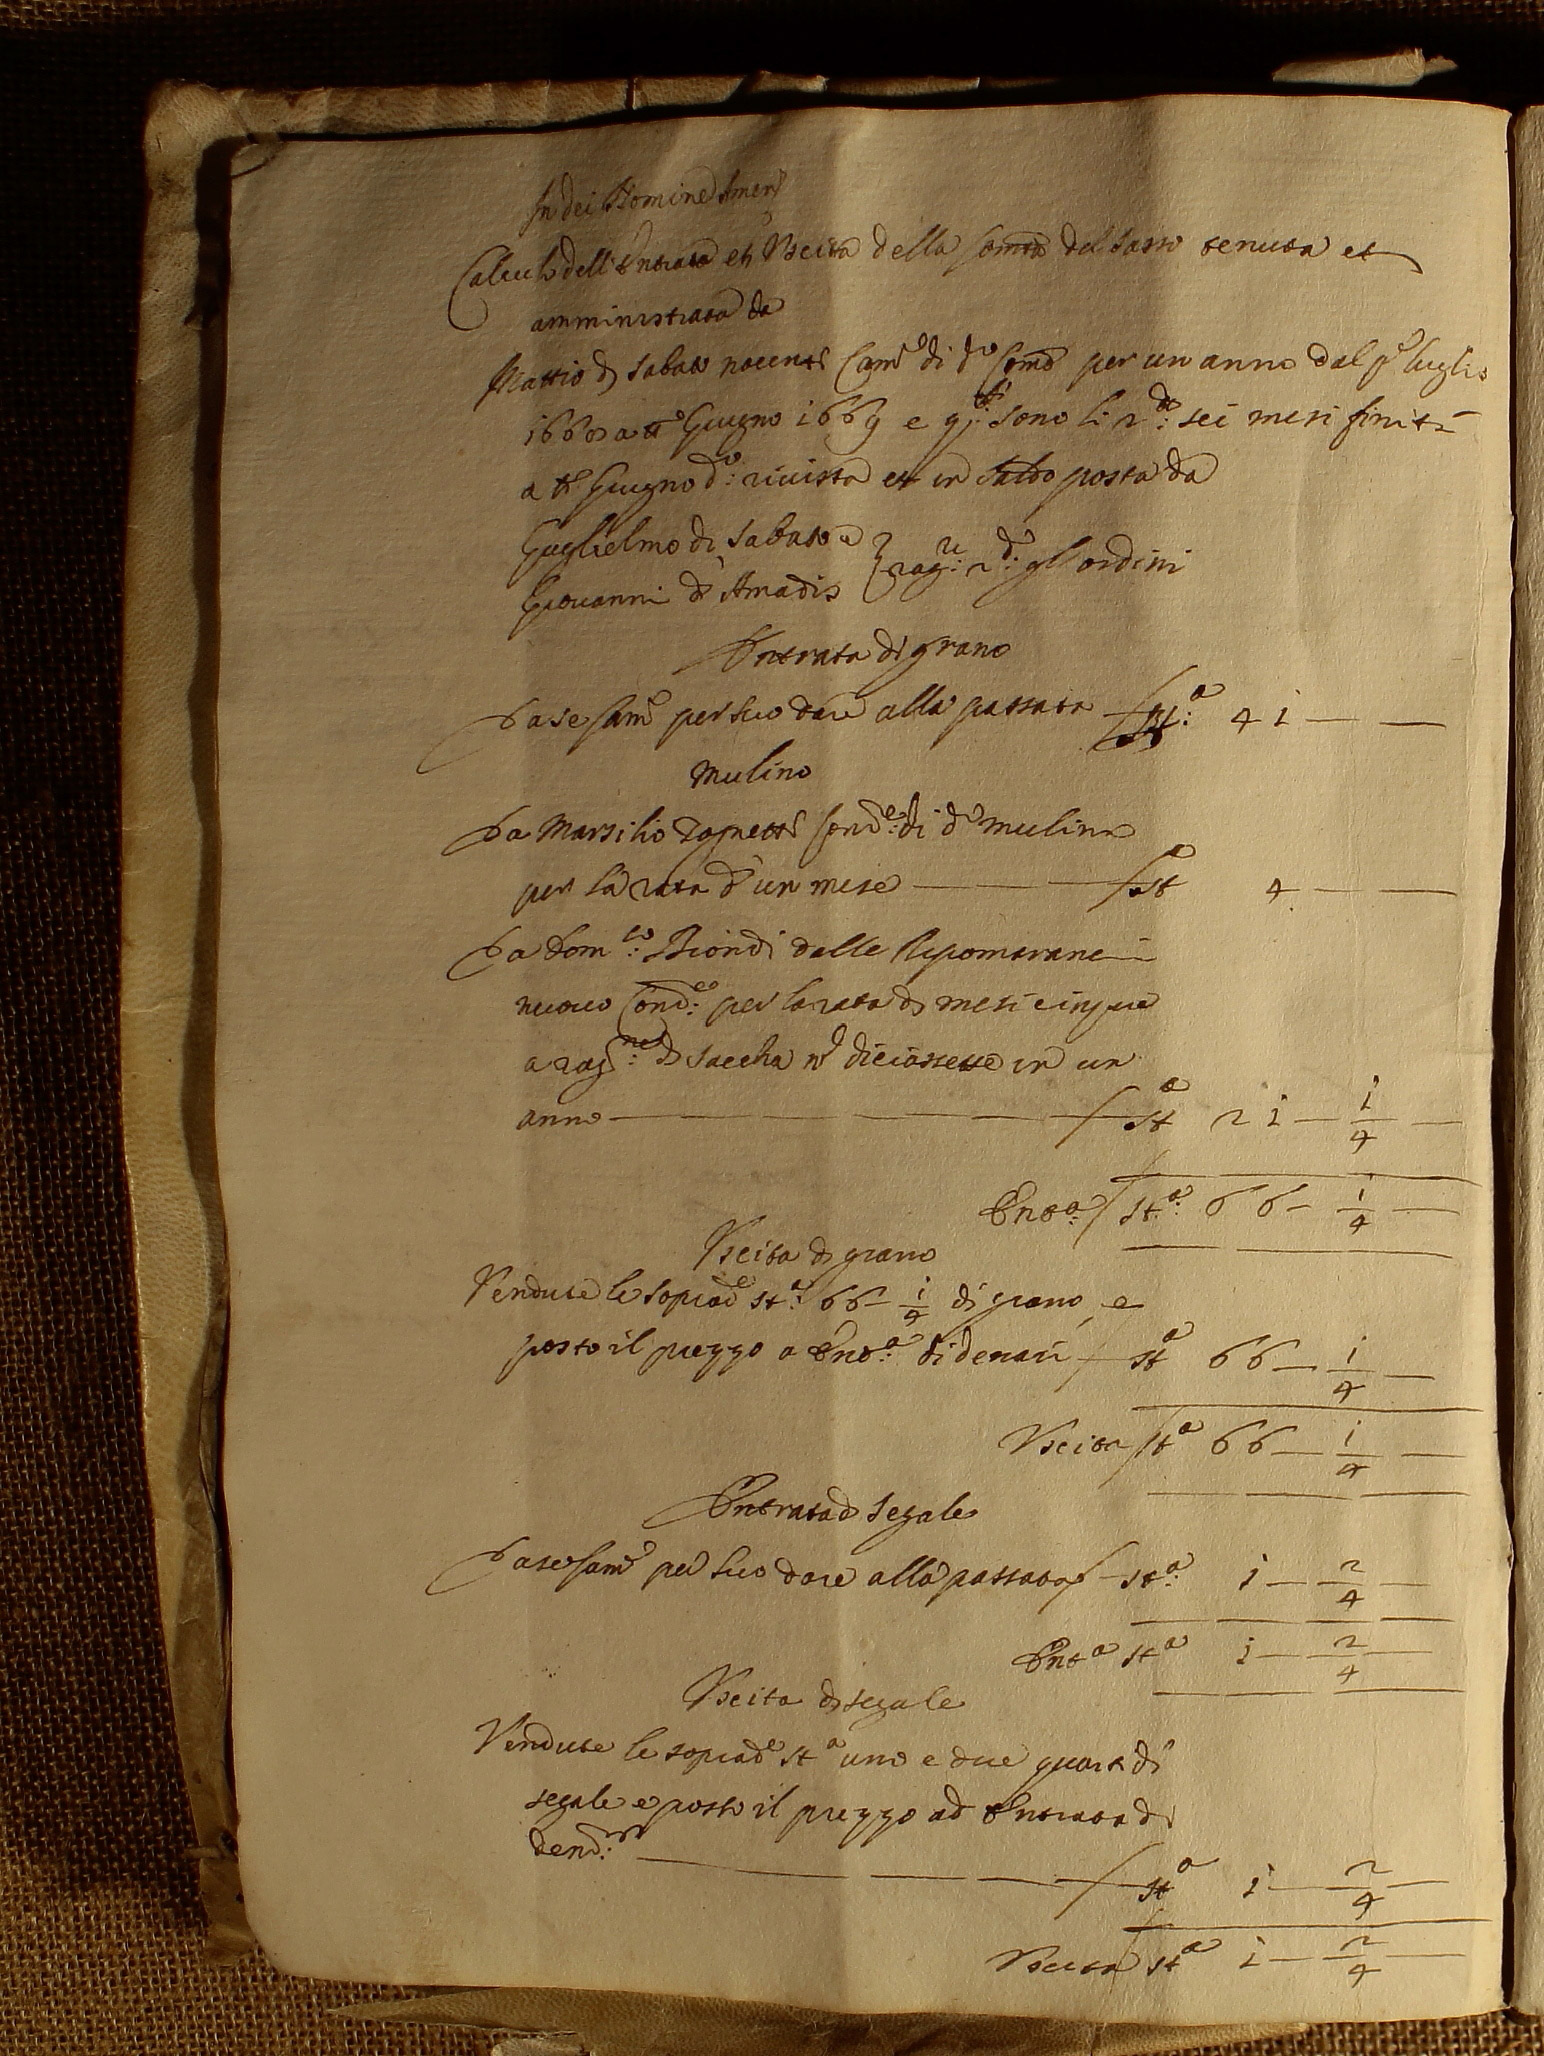 In dei Nomine Amen
Calculo dell'Entrata et Uscita della Comtà del Sasso tenuta et
amministrata da
Mattio di Sabato nocenti Camo di do Comò per un anno dal po luglio
a tto Giugno 1669 e qsti sono li sei mesi finiti
a tto Giugno do: rivista et in saldo posta da
Guglielmo di Sabato e
Giovanni di Amadio } ragri: gl'ordini
Entrata di grano
Da se Camo per suo dare alla passata Sta: 41
Mulino
Da Marsilio Zagnetti Condre: di do mulino
per la rata d'un mese Sta 4
Da Domco: Biondi dalle Ripomarance
nuovo Condre: per la rata di mesi cinque
a ragne: di sacha no diciassette in un
anno Sta 21 1/4
Enta: Sta: 66 1/4
Uscita di grano
Vendute le soprade sta: 66 1/4 di grano e
posto il prezzo a Enta: di denari sta 66 1/4
Uscita sta 66 1/4
Entrata di segale
Da se Camo per suo dare alla passata sta: 1 2/4
Enta sta 1 2/4
Uscita di segale
Vendute le soprade sta uno e due quarti di
segale e posto il prezzo ad Entrata di
denri: sta 1 2/4
Uscita sta 1 2/4